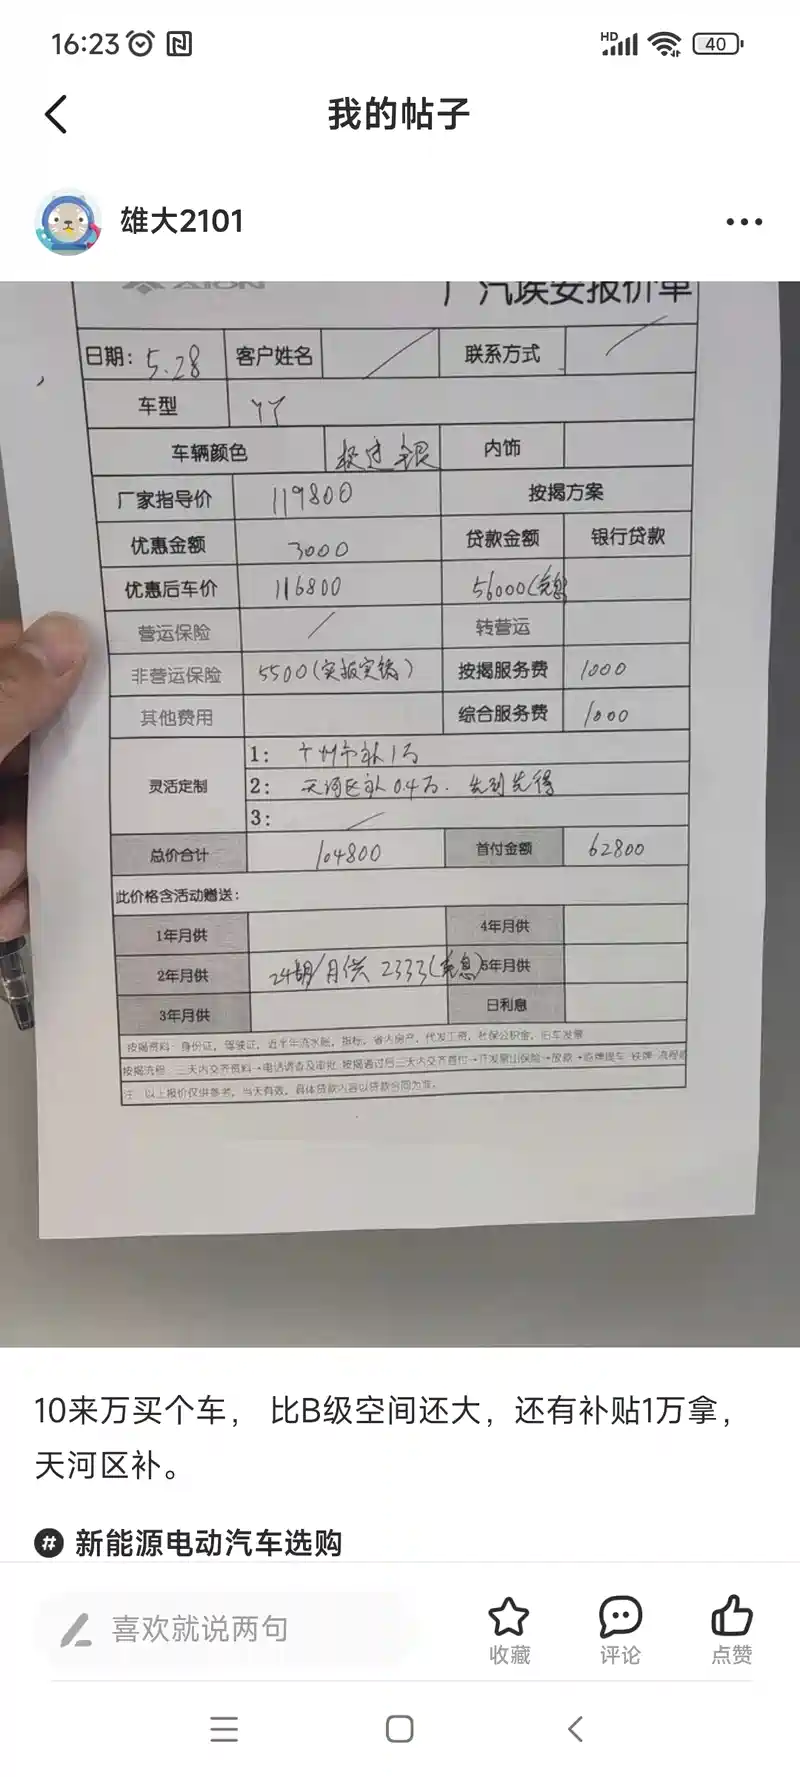 16:23
HD
40
我的帖子
雄大2101
AION
广汽埃安报价单
日期: 5.28 客户姓名 联系方式
车型 YY
车辆颜色 极速银 内饰
厂家指导价 119800 按揭方案
优惠金额 3000 贷款金额 银行贷款
优惠后车价 116800 56000(免息
营运保险 转营运
非营运保险 5500(实报实销) 按揭服务费 1000
其他费用 综合服务费 1000
灵活定制
1: 广州市补1万
2: 天河区补0.4万. 先到先得
3:
总价合计 104800 首付金额 62800
此价格含活动赠送:
1年月供 4年月供
2年月供 24期/月供 2333(免息) 5年月供
3年月供 日利息
按揭资料: 身份证, 驾驶证, 近半年流水账, 指标, 省内房产, 代发工资, 社保公积金, 旧车发票
按揭流程: 三天内交齐资料→电话调查及审批 按揭通过后三天内交齐首付→开发票山保险→放款→临牌提车
注: 以上报价仅供参考, 当天有效, 具体贷款内容以贷款合同为准。
10来万买个车， 比B级空间还大，还有补贴1万拿，
天河区补。
# 新能源电动汽车选购
喜欢就说两句
收藏 评论 点赞